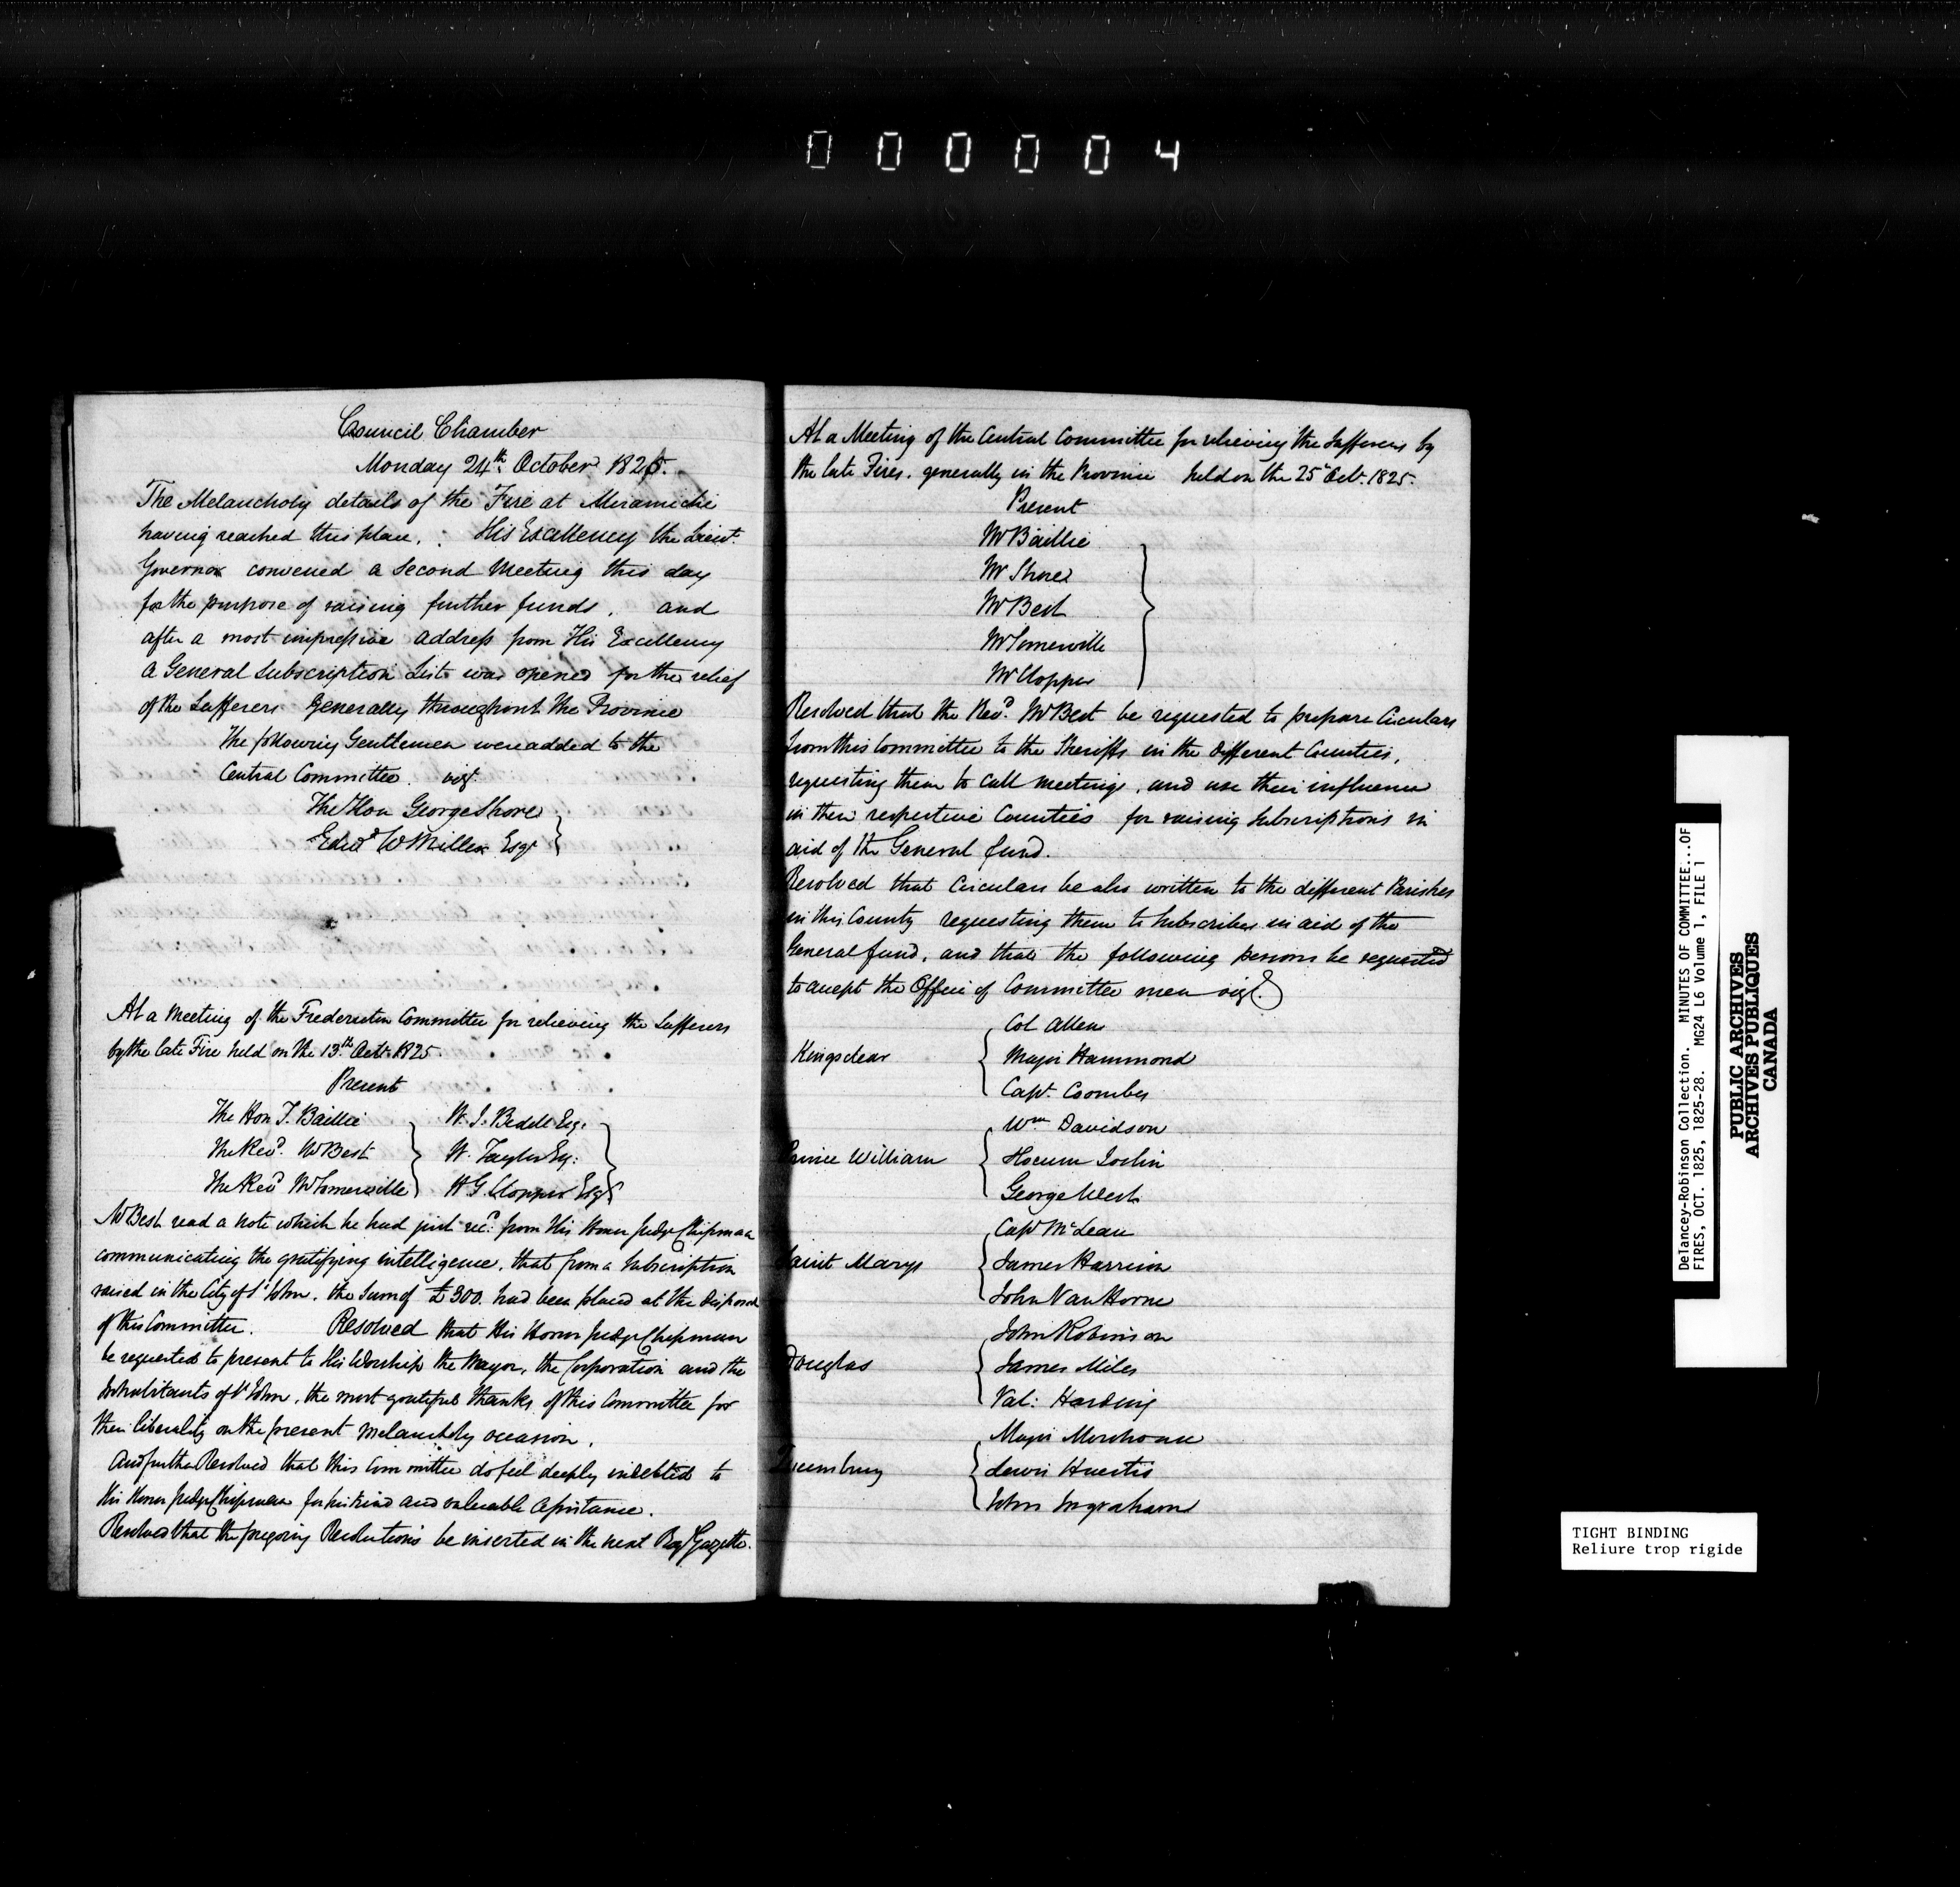 000004
Council Chamber
Monday 24th October 1825.
The Melancholy details of the Fire at Miramichi
having reached this place, His Excellency the Lieut.
Governor convened a Second Meeting this day
for the purpose of raising further funds, and
after a most impressive address from His Excellency
a General Subscription List was opened for the relief
of the Sufferers Generally throughout the Province
The following Gentlemen were added to the
Central Committee vizt.
The Hon George Shore
Edwd W Miller Esqr
At a Meeting of the Fredericton Committee for relieving the Sufferers
by the late Fire held on the 13th Octr. 1825.
Present
The Hon T. Baillie W. J. Bedell Esq.
The Revd. Mr Best W. Taylor Esq.
The Revd Mr Somerville H G Clopper Esqr
Mr Best read a note which he had just recd. from His Honor Judge Chipman
communicating the gratifying intelligence, that from a Subscription
raised in the City of St John, the Sum of £300. had been placed at the disposal
of this Committee. Resolved that His Honor Judge Chipman
be requested to present to His Worship the Mayor, the Corporation and the
Inhabitants of St John, the most grateful thanks of this Committee for
their liberality on the present melancholy occasion.
And further Resolved that this Committee do feel deeply indebted to
His Honor Judge Chipman for his kind and valuable assistance.
Resolved that the foregoing Resolutions be inserted in the next Royl Gazette.
At a Meeting of the Central Committee for relieving the Sufferers by
the late Fires, generally in the Province held on the 25 Octr. 1825.
Present
Mr Baillie
Mr Shore
Mr Best
Mr Somerville
Mr Clopper
Resolved that the Revd. Mr Best be requested to prepare Circulars
from this Committee to the Sheriffs in the different Counties,
requesting them to call meetings, and use their influence
in their respective Counties for raising Subscriptions in
aid of the General fund.
Resolved that Circulars be also written to the different Parishes
in this County requesting them to Subscribe in aid of the
General fund, and that the following persons be requested
to accept the Office of Committee men vizt.
Kingsclear
Col Allen
Major Hammond
Capt. Coombes
Prince William
Wm Davidson
Hocum Joslin
George West
Saint Marys
Capt McLean
James Harrison
John Van Horne
Douglas
John Robinson
James Miles
Val: Harding
Queensbury
Major Morehouse
Lewis Huestis
John Ingraham
Delancey-Robinson Collection. MINUTES OF COMMITTEE...OF
FIRES, OCT. 1825, 1825-28. MG24 L6 Volume 1, FILE 1
PUBLIC ARCHIVES
ARCHIVES PUBLIQUES
CANADA
TIGHT BINDING
Reliure trop rigide